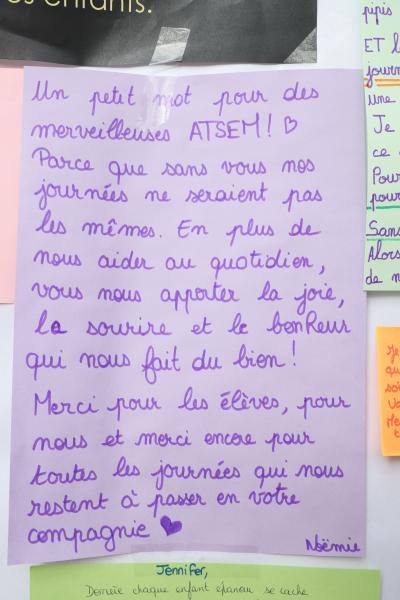 enfants.
Un petit mot pour des
merveilleuses ATSEM! ♡
Parce que sans vous nos
journées ne seraient pas
les mêmes. En plus de
nous aider au quotidien,
vous nous apporter la joie,
la sourire et le bonheur
qui nous fait du bien!
Merci pour les élèves, pour
nous et merci encore pour
toutes les journées qui nous
restent à passer en votre
compagnie ♥
Noëmie
pipis
ET l
journ
une
Je
ce
Pour
pour
Sans
Alors
de n
Je
qu
soi
Jennifer,
Derrière chaque enfant épanoui se cache